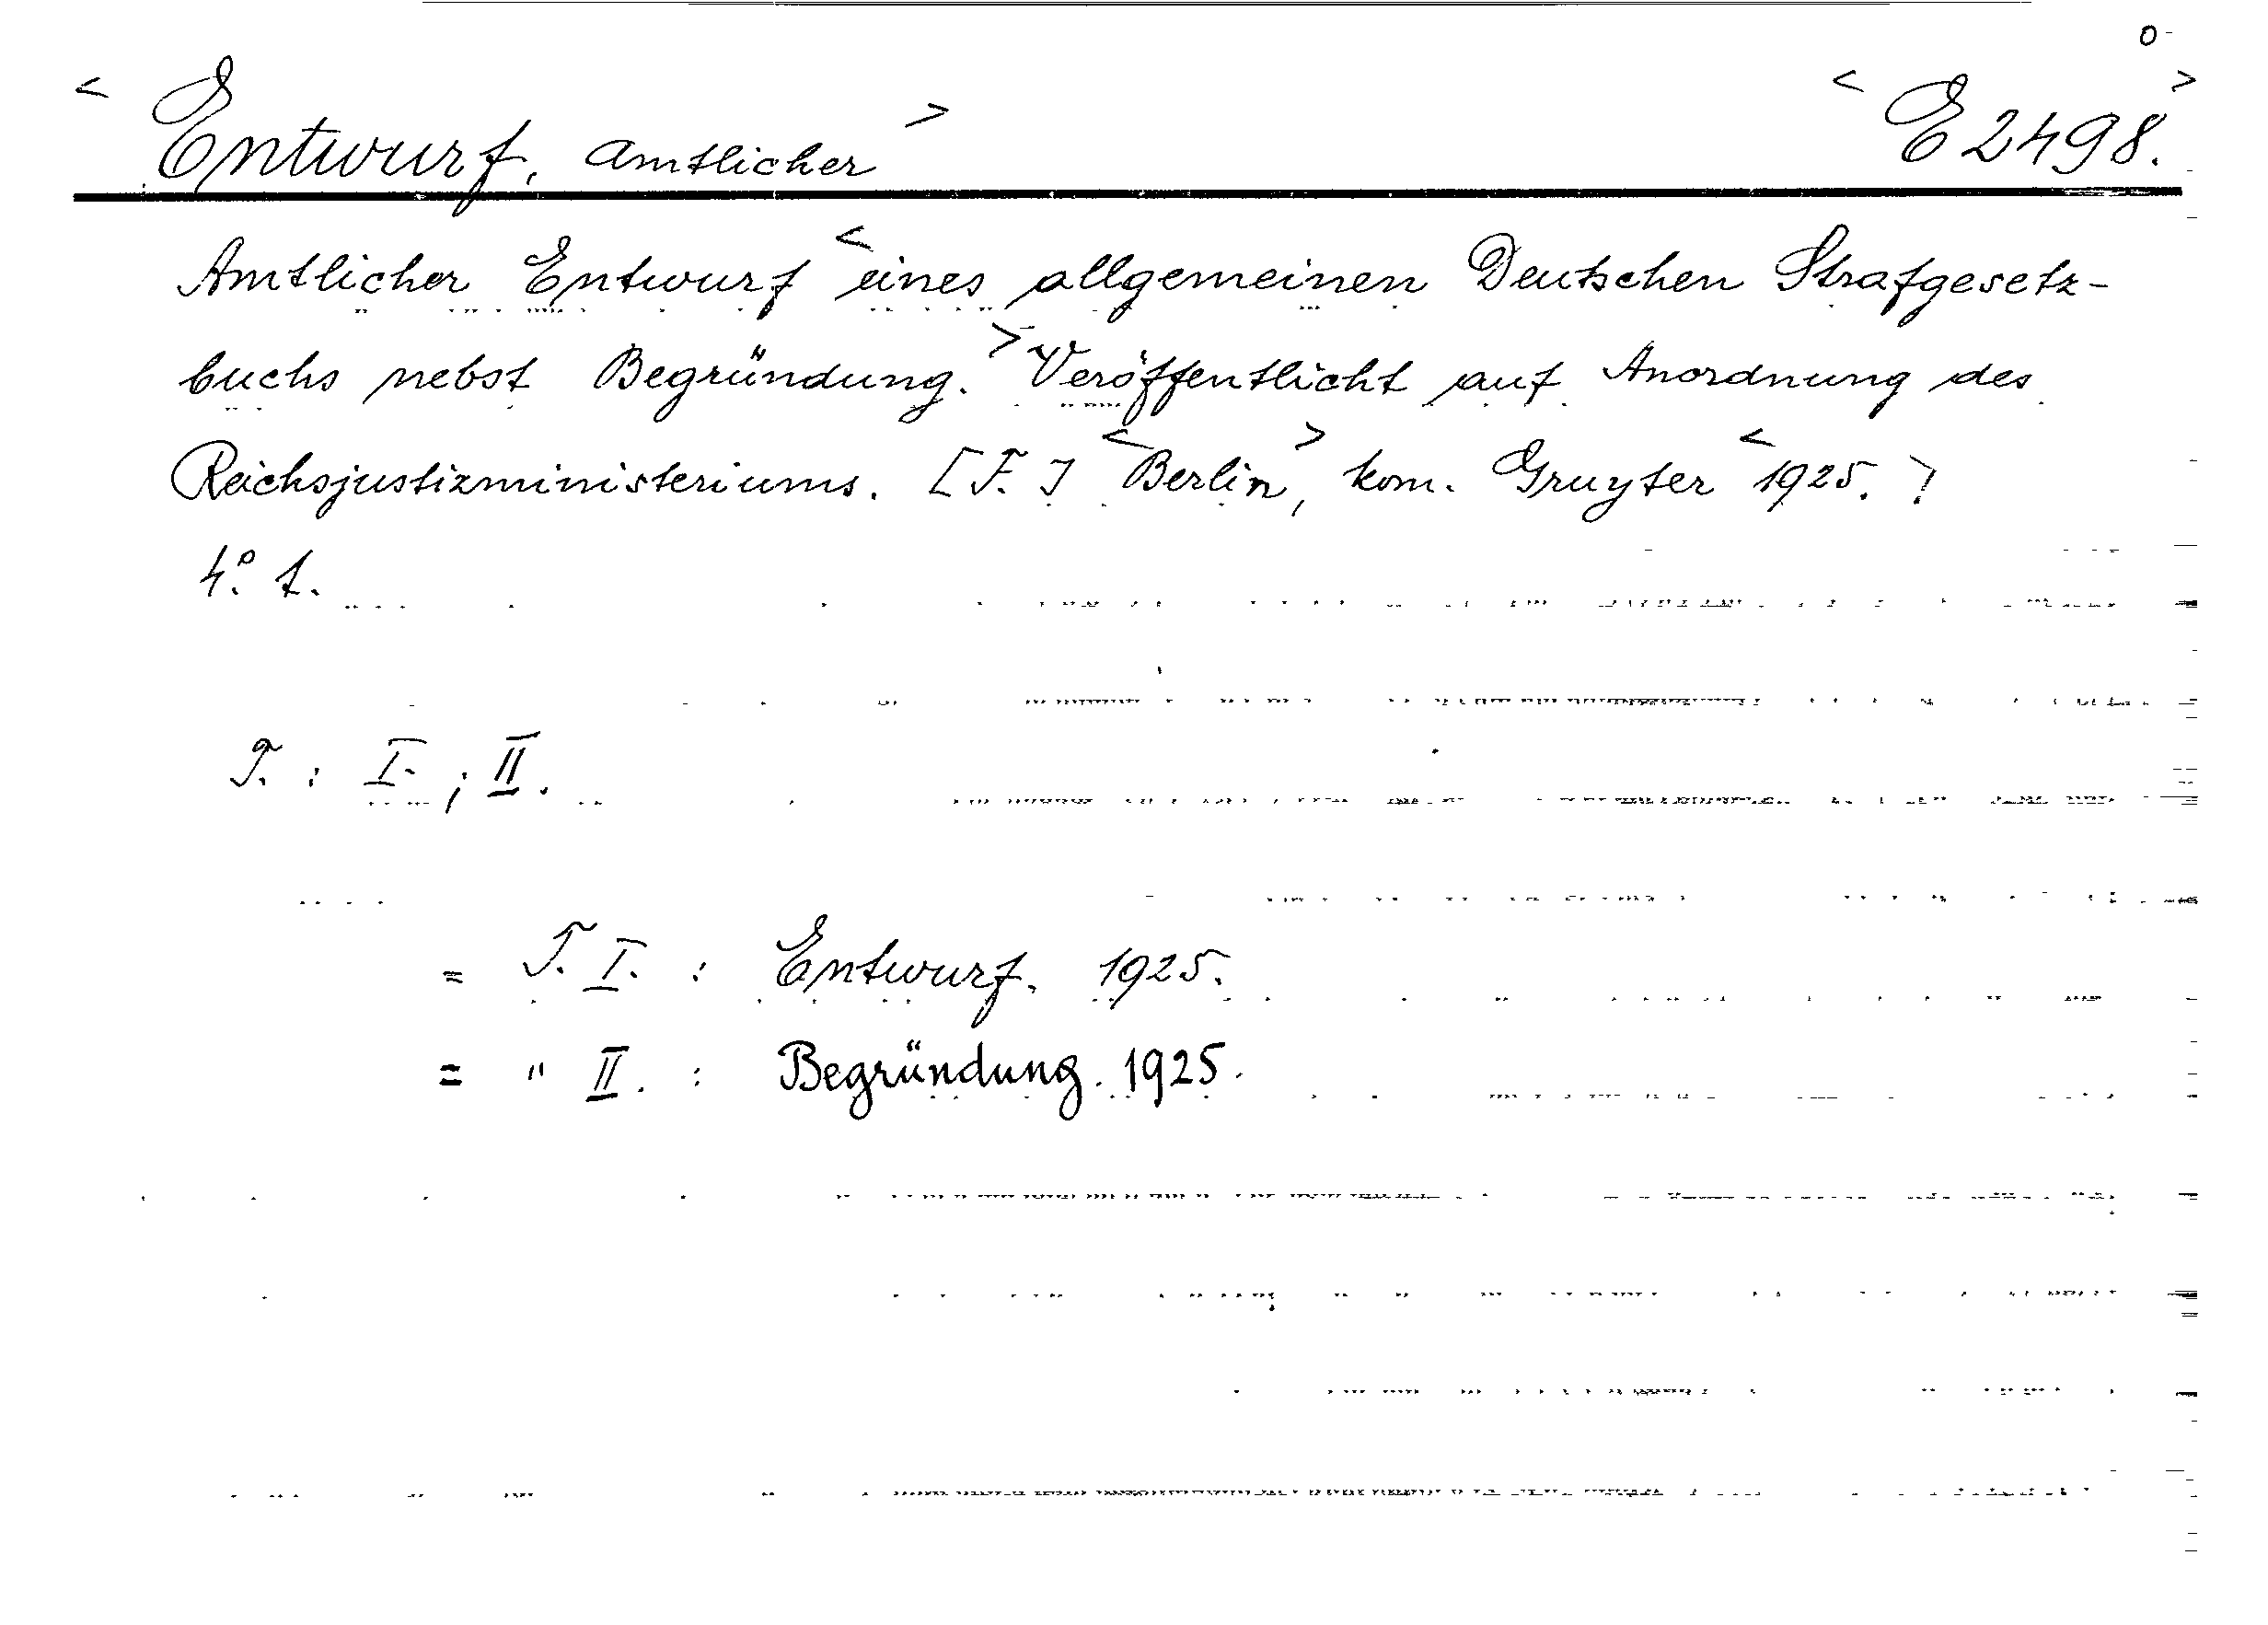 o
< Entwurf, amtlicher > < E 2498. >
Amtlicher Entwurf < eines allgemeinen Deutschen Strafgesetz-
buchs nebst Begründung. > Veröffentlicht auf Anordnung des
Reichsjustizministeriums. [T.] < Berlin >, kom. Gruyter < 1925. >
4°. t.
T. : I. ; II.
= T. I. : Entwurf. 1925.
= " II. : Begründung. 1925.